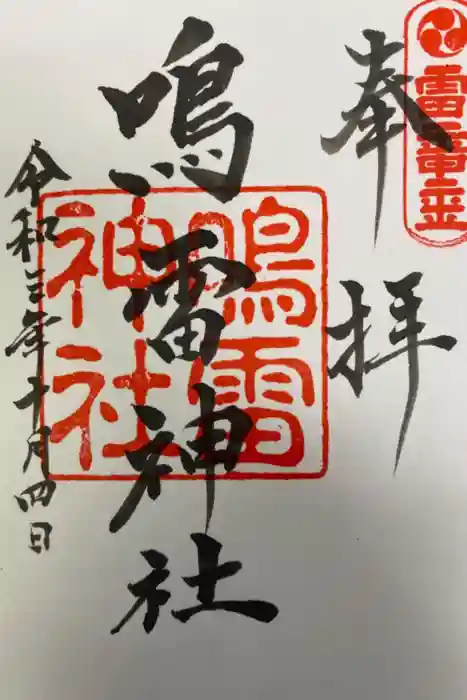 奉拝
鳴雷神社
鳴雷
神社
令和三年十月四日